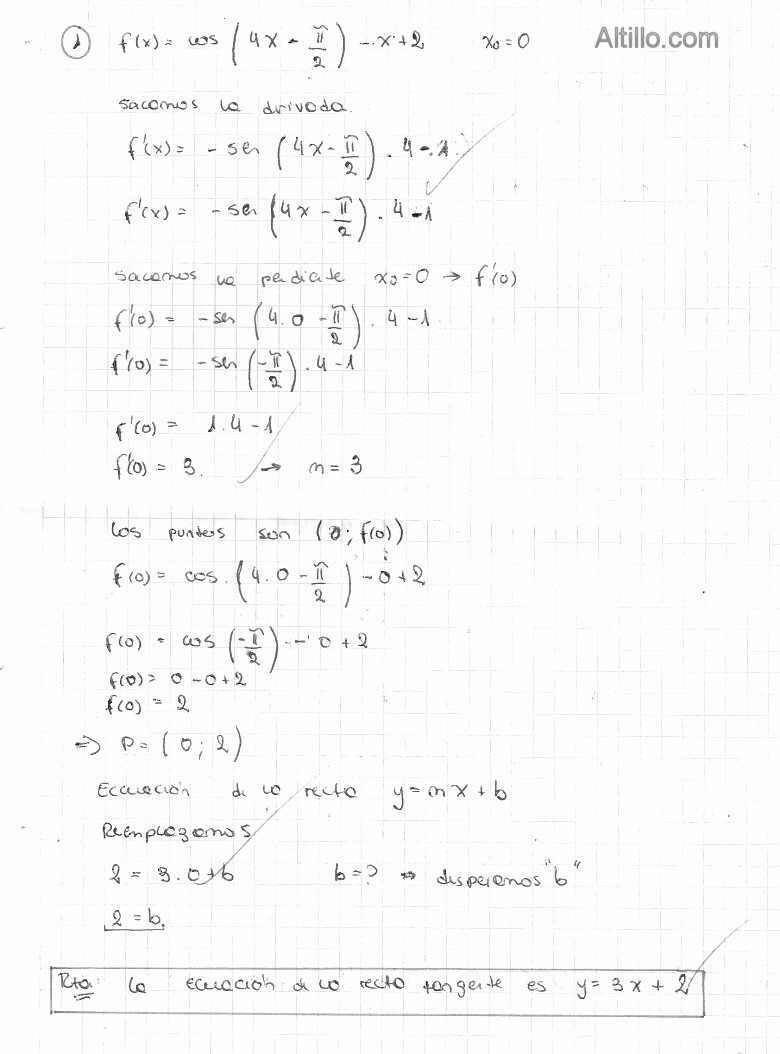 ① f(x) = cos (4x - π/2) - x + 2 x₀ = 0 Altillo.com
sacamos la drivada.
f'(x) = - sen (4x - π/2) . 4 - 1
f'(x) = - sen (4x - π/2) . 4 - 1
sacamos la pendiente x₀ = 0 → f'(0)
f'(0) = - sen (4.0 - π/2) . 4 - 1
f'(0) = - sen (-π/2) . 4 - 1
f'(0) = 1.4 - 1
f'(0) = 3. → m = 3
los puntos son (0; f(0))
f(0) = cos. (4.0 - π/2) - 0 + 2
f(0) = cos (-π/2) - 0 + 2
f(0) = 0 - 0 + 2
f(0) = 2
=> P = (0; 2)
Ecuación de la recta y = mx + b
Reemplazamos
2 = 3.0 + b b = ? ⇒ despejamos "b"
2 = b.
Rta: la ecuación de la recta tangente es y = 3x + 2